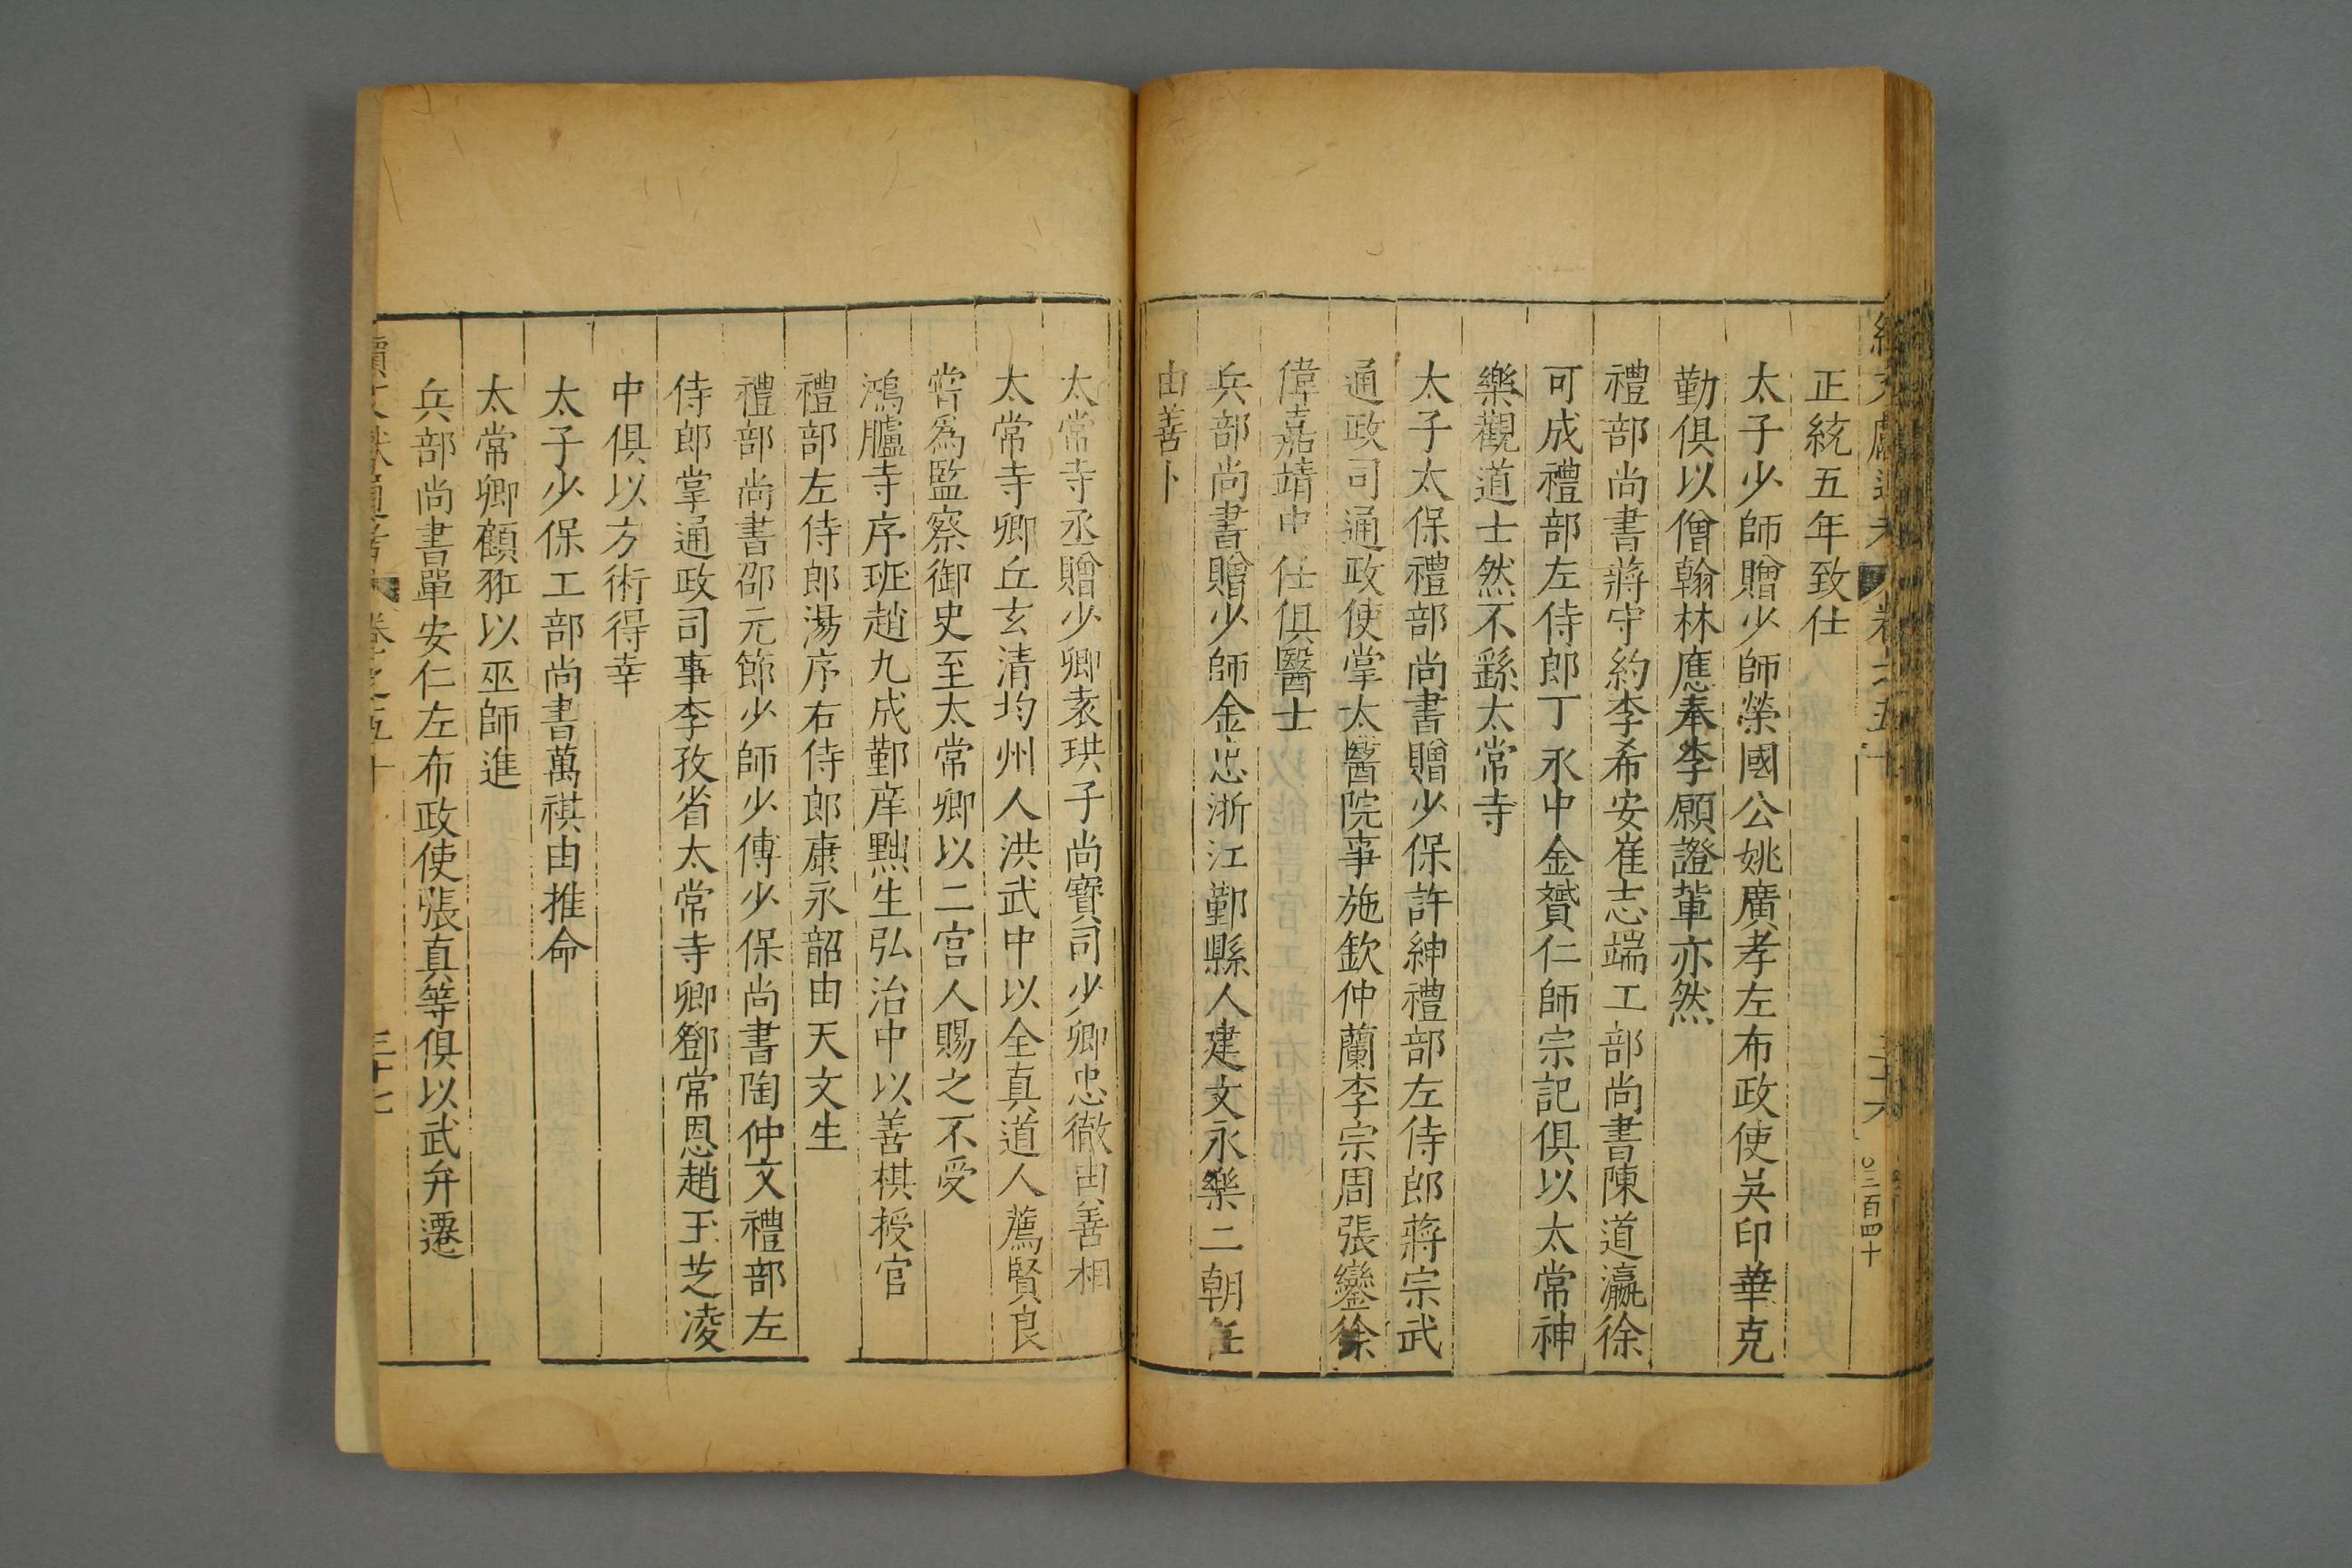 正統五年致仕
太子少師贈少師榮國公姚廣孝左布政使吳印華克
勤俱以僧翰林應奉李願證輩亦然
禮部尚書蔣守約李希安崔志端工部尚書陳道瀛徐
可成禮部左侍郎丁永中金贇仁師宗記俱以太常神
樂觀道士然不繇太常寺
太子太保禮部尚書贈少保許紳禮部左侍郎蔣宗武
通政司通政使掌太醫院事施欽仲蘭李宗周張鑾徐
偉嘉靖中任俱醫士
兵部尚書贈少師金忠浙江鄞縣人建文永樂二朝任
由善卜
三百四十
太常寺丞贈少卿袁珙子尚寶司少卿忠徹由善相
太常寺卿丘玄清均州人洪武中以全真道人薦賢良
嘗為監察御史至太常卿以二宮人賜之不受
鴻臚寺序班趙九成鄞庠黜生弘治中以善棋授官
禮部左侍郎湯序右侍郎康永韶由天文生
禮部尚書邵元節少師少傅少保尚書陶仲文禮部左
侍郎掌通政司事李孜省太常寺卿鄧常恩趙玉芝凌
中俱以方術得幸
太子少保工部尚書萬祺由推命
太常卿顧玒以巫師進
兵部尚書單安仁左布政使張真等俱以武弁遷
續文獻通考 卷之五十 三十七